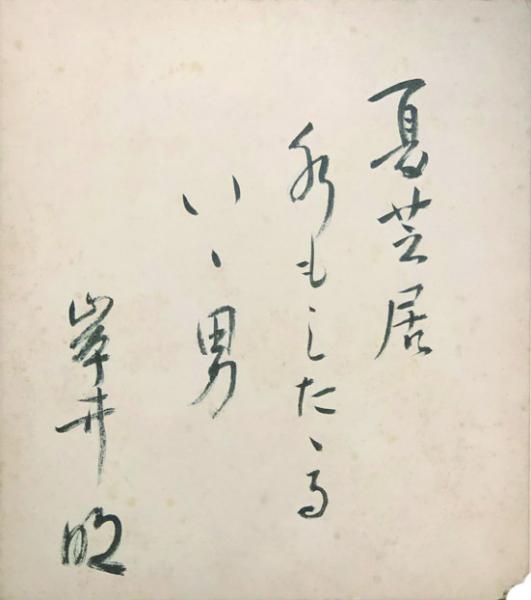 夏芝居
水もしたゝる
いゝ男
岸井明